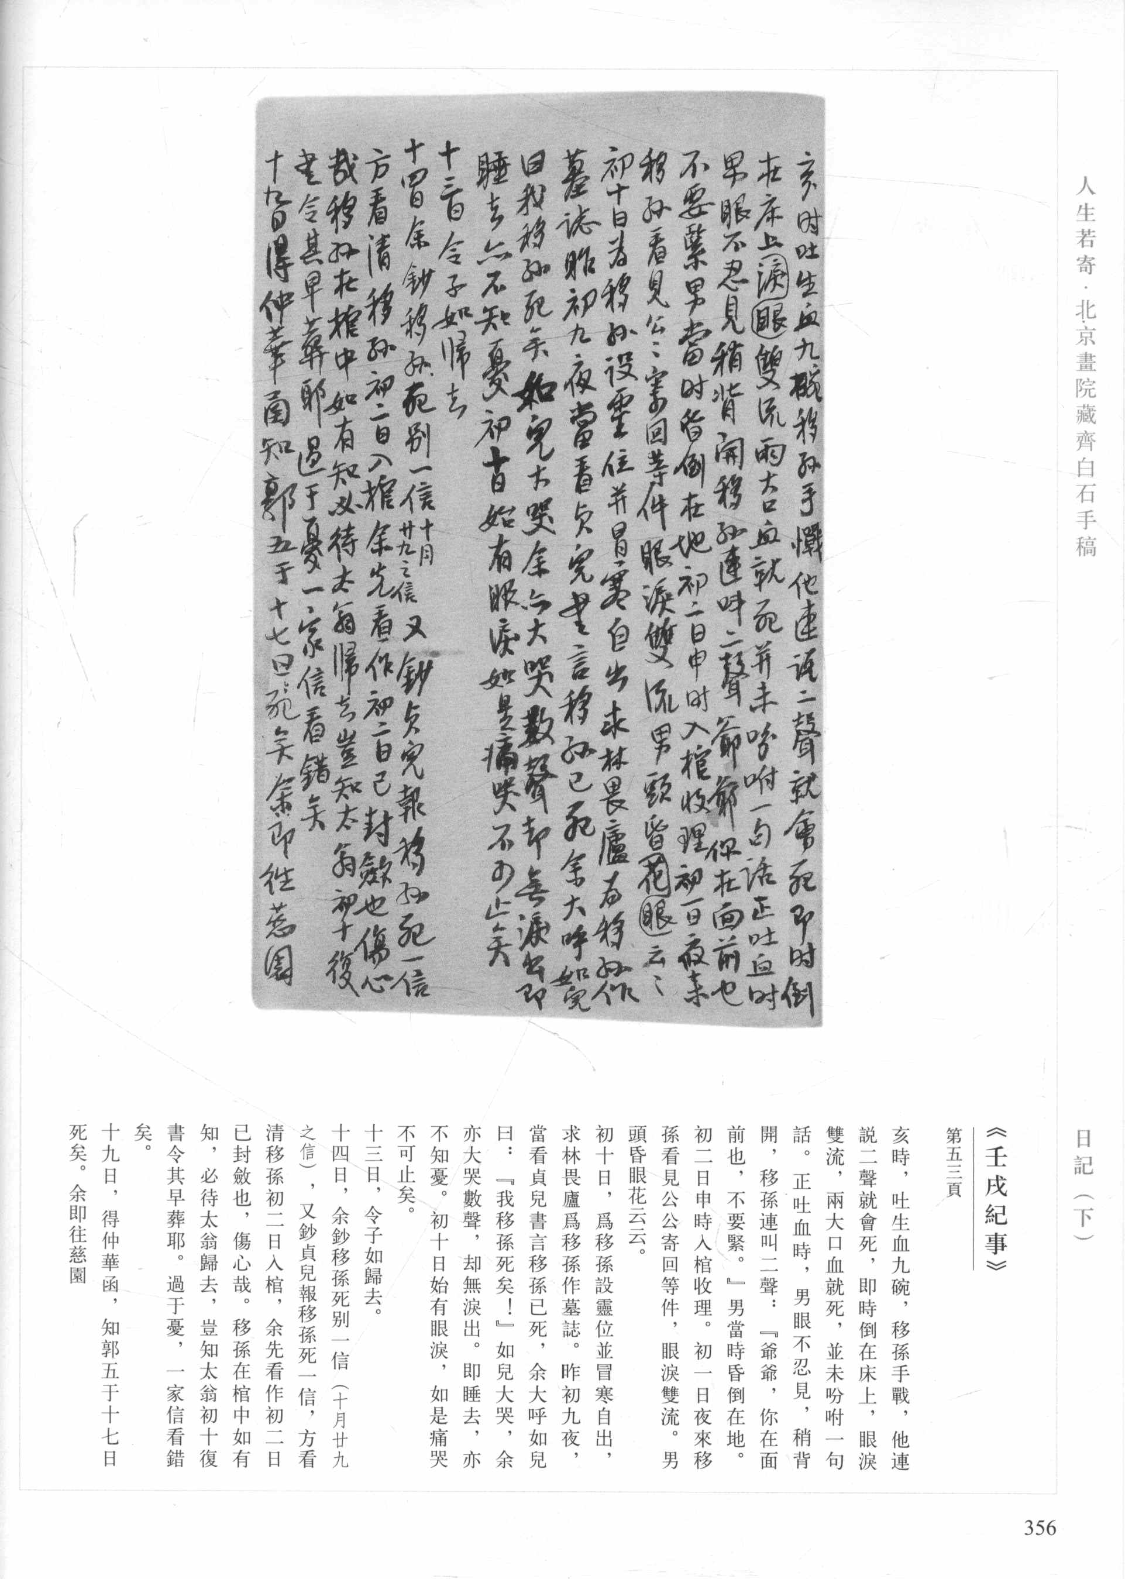 人生若寄·北京畫院藏齊白石手稿
日記（下）
亥时吐生血九碗移孫手戰他連説二聲就會死即时倒
在床上淚眼雙流兩大口血就死并未吩咐一句話正吐血时
男眼不忍見稍背開移孫連叫二聲爺爺你在面前也
不要緊男當时昏倒在地初二日申时入棺收理初一日夜来
移孫看見公〻寄回等件眼淚雙流男頭昏花眼云〻
初十日為移孫設靈位并冒寒自出求林畏廬為移孫作
墓誌昨初九夜當看貞兒書言移孫已死余大呼如兒
曰我移孫死矣如兒大哭余亦大哭數聲却無淚出即
睡去亦不知憂初十日始有眼淚如是痛哭不可止矣
十三日令子如歸去
十四日余鈔移孫死别一信十月廿九之信又鈔貞兒報移孫死一信
方看清移孫初二日入棺余先看作初二日已封斂也傷心
哉移孫在棺中如有知必待太翁歸去豈知太翁初十復
書令其早葬耶過于憂一家信看錯矣
十九日得仲華函知郭五于十七日死矣余即往慈園
《壬戌紀事》
第五三頁
亥時，吐生血九碗，移孫手戰，他連
説二聲就會死，即時倒在床上，眼淚
雙流，兩大口血就死，並未吩咐一句
話。正吐血時，男眼不忍見，稍背
開，移孫連叫二聲：『爺爺，你在面
前也，不要緊。』男當時昏倒在地。
初二日申時入棺收理。初一日夜來移
孫看見公公寄回等件，眼淚雙流。男
頭昏眼花云云。
初十日，爲移孫設靈位並冒寒自出，
求林畏廬爲移孫作墓誌。昨初九夜，
當看貞兒書言移孫已死，余大呼如兒
曰：『我移孫死矣！』如兒大哭，余
亦大哭數聲，却無淚出。即睡去，亦
不知憂。初十日始有眼淚，如是痛哭
不可止矣。
十三日，令子如歸去。
十四日，余鈔移孫死别一信（十月廿九
之信），又鈔貞兒報移孫死一信，方看
清移孫初二日入棺，余先看作初二日
已封斂也，傷心哉。移孫在棺中如有
知，必待太翁歸去，豈知太翁初十復
書令其早葬耶。過于憂，一家信看錯
矣。
十九日，得仲華函，知郭五于十七日
死矣。余即往慈園
356